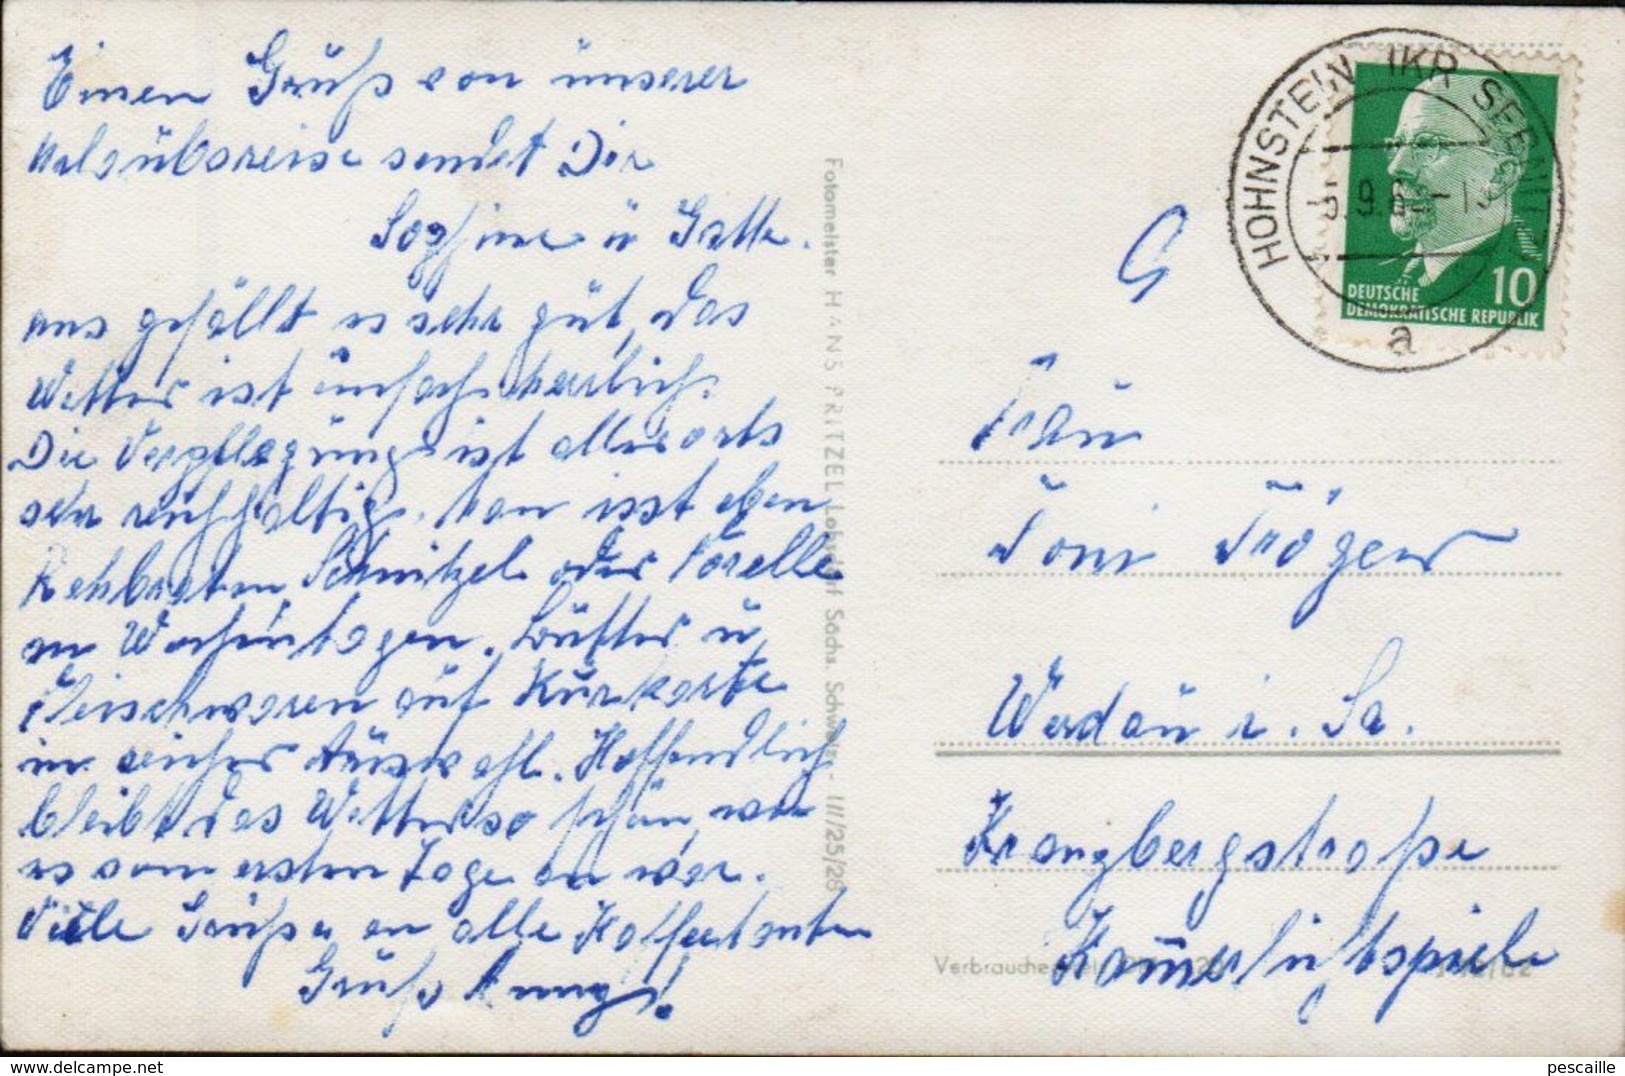 Einen Gruß von unserer
Urlaubsreise sendet Dir
u Gatte.
uns gefällt es sehr gut, das
Wetter ist einfach herrlich.
Die Verpflegung ist allerorts
sehr reichhaltig. Man isst eben
Rehbraten Schnitzel oder Forelle
an Wochentagen. Butter u
Fleischwaren auf Kurkarte
in reicher Auswahl. Hoffendlich
bleibt das Wetter so schön, wie
es vom ersten Tage an war.
Viele Grüße an alle Kaffeetanten
Gruß
Fotomeister HANS PRITZEL Lohsdorf Sächs. Schweiz - III/25/28
HOHNSTEIN KR SEBNITZ
a
10
DEUTSCHE
DEMOKRATISCHE REPUBLIK
Frau
Toni Tröger
Werdau i. Sa.
Kranzbergstraße
Kammerlichtspiele
pescaille